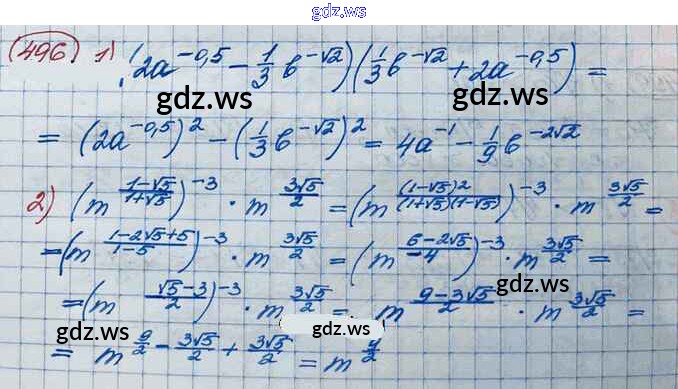 gdz.ws
496 1) (2a^{-0,5} - \frac{1}{3}b^{-√2})(\frac{1}{3}b^{-√2} + 2a^{-0,5}) =
gdz.ws gdz.ws
= (2a^{-0,5})^2 - (\frac{1}{3}b^{-√2})^2 = 4a^{-1} - \frac{1}{9}b^{-2√2}
2) (m^{\frac{1-√5}{1+√5}})^{-3} · m^{\frac{3√5}{2}} = (m^{\frac{(1-√5)^2}{(1+√5)(1-√5)}})^{-3} · m^{\frac{3√5}{2}} =
= (m^{\frac{1-2√5+5}{1-5}})^{-3} · m^{\frac{3√5}{2}} = (m^{\frac{6-2√5}{-4}})^{-3} · m^{\frac{3√5}{2}} =
= (m^{\frac{√5-3}{2}})^{-3} · m^{\frac{3√5}{2}} = m^{\frac{9-3√5}{2}} · m^{\frac{3√5}{2}} =
gdz.ws gdz.ws gdz.ws
= m^{\frac{9}{2} - \frac{3√5}{2} + \frac{3√5}{2}} = m^{\frac{9}{2}}